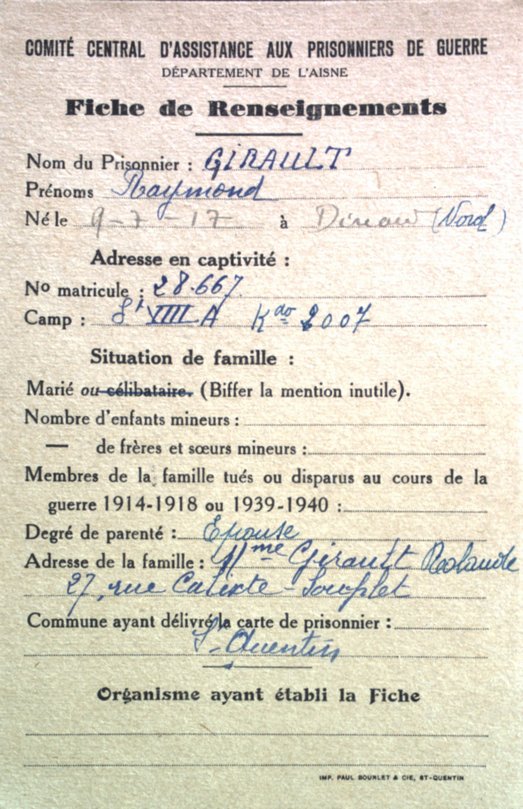 COMITÉ CENTRAL D'ASSISTANCE AUX PRISONNIERS DE GUERRE
DÉPARTEMENT DE L'AISNE
Fiche de Renseignements
Nom du Prisonnier : GIRAULT
Prénoms Raymond
Né le 9-7-17 à (Nord)
Adresse en captivité :
No matricule : 28.667
Camp : St VIII A Kdo 2007
Situation de famille :
Marié ou célibataire. (Biffer la mention inutile).
Nombre d'enfants mineurs :
— de frères et sœurs mineurs :
Membres de la famille tués ou disparus au cours de la
guerre 1914-1918 ou 1939-1940 :
Degré de parenté : Epouse
Adresse de la famille : Mme Girault Rolande
27, rue Calixte-Souplet
Commune ayant délivré la carte de prisonnier :
St-Quentin
Organisme ayant établi la Fiche
IMP. PAUL BOURLET & CIE, ST-QUENTIN